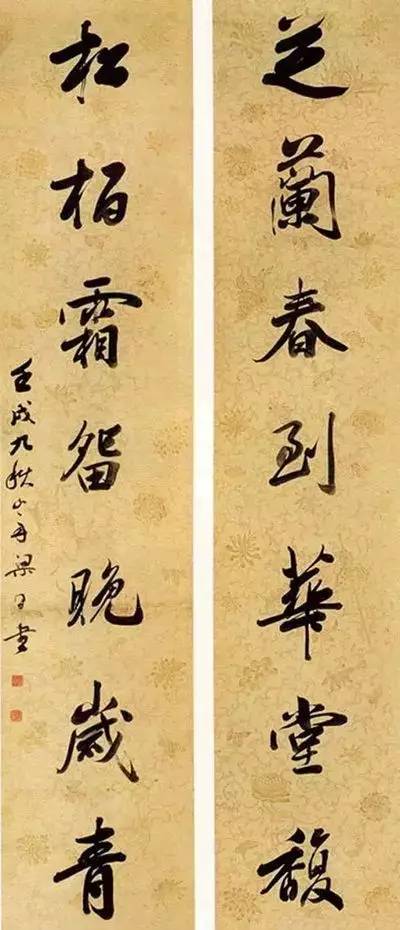 芝蘭春到華堂馥
松柏霜留晚歲青
壬戌九秋山舟梁同書